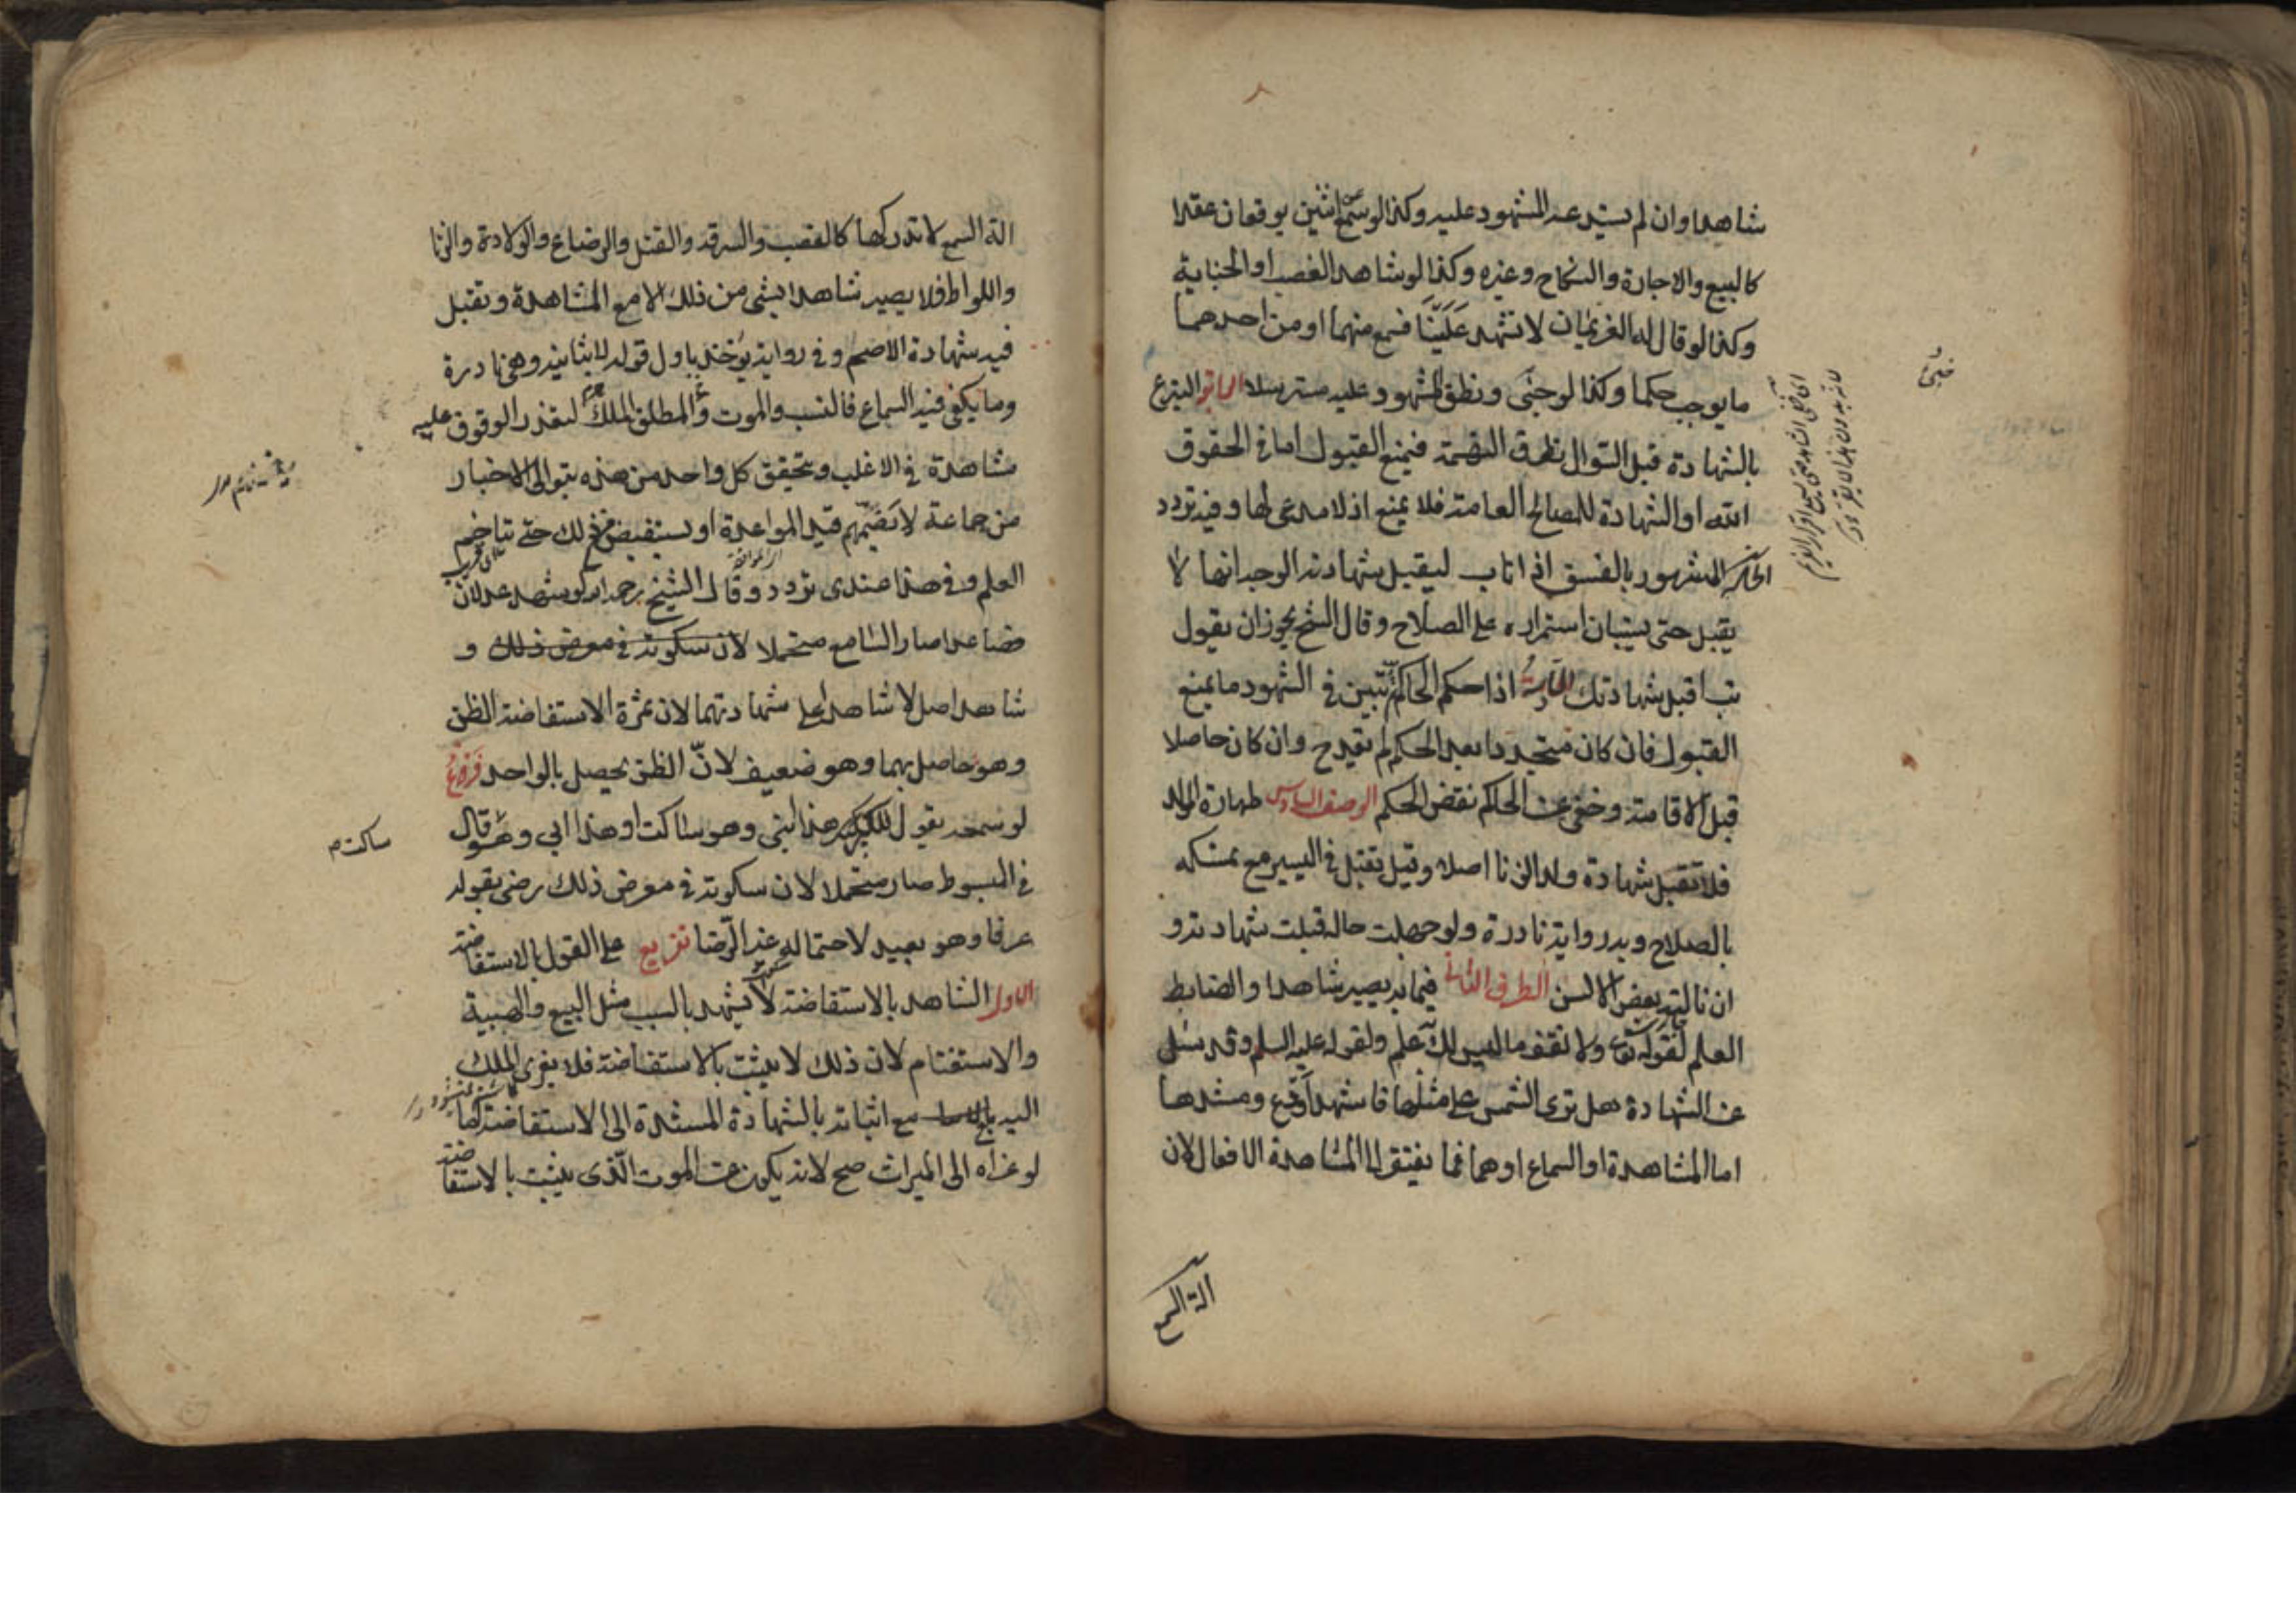 شاهدا وان لم يستدعه المشهود عليه وكذا لو سمع اثنين يوقعان عقدا
كالبيع والاجارة والنكاح وغيره وكذا لو شاهد الغصب او الجناية
وكذا لو قال له الغريمان لا تشهد علينا فسمع منهما او من احدهما
ما يوجب حكما وكذا لو خبى ونطق المشهود عليه مسترسلا الرابعة التبرع
بالشهادة قبل السوال يطرق التهمة فيمنع القبول اما في الحقوق
الله او الشهادة للمصالح العامة فلا يمنع اذ لا مدعى لها وفيه تردد
المشهور بالفسق اذا تاب ليقبل شهادته الوجه انها لا
يقبل حتى يستبان استمراره على الصلاح وقال الشيخ يجوز ان يقول
تب اقبل شهادتك اذا حكم الحاكم ثم تبين في الشهود ما يمنع
القبول فان كان متجددا بعد الحكم لم يقدح وان كان حاصلا
قبل الاقامة وخفى عن الحاكم نقض الحكم الوصف السادس طهارة المولد
فلا تقبل شهادة ولد الزنا اصلا وقيل تقبل في اليسير مع تمسكه
بالصلاح وبه رواية نادرة ولو جهلت حاله قبلت شهادته و
ان نالته بعض الالسن الطرف الثانى فيما به يصير شاهدا والضابط
العلم لقوله تعالى ولا تقف ما ليس لك به علم ولقوله عليه السلم وقد سئل
عن الشهادة هل ترى الشمس على مثلها فاشهد او دع ومستندها
اما المشاهدة او السماع او هما فما يفتقر الى المشاهدة الافعال لان
الة السمع
خبئ
الة السمع لا تدركها كالغصب والسرقة والقتل والرضاع والولادة والزنا
واللواط فلا يصير شاهدا بشى من ذلك الا مع المشاهدة وتقبل
فيه شهادة الاصم وفي رواية يؤخذ باول قوله لا بثانيه وهى نادرة
وما يكفى فيه السماع فالنسب والموت والملك المطلق لتعذر الوقوف عليه
مشاهدة في الاغلب ويتحقق كل واحد من هذه بتوالى الاخبار
من جماعة لا يضمهم قيد المواعدة او يستفيض ذلك حتى تتاخم
العلم وفي هذا عندى تردد وقال الشيخ رحمه الله لو شهد عدلان
فصاعدا صار السامع متحملا لان سكوته في معرض ذلك و
شاهد اصل لا شاهدا على شهادتهما لان ثمرة الاستفاضة الظن
وهو حاصل بهما وهو ضعيف لان الظن يحصل بالواحد فرع
لو سمعه يقول للكبير هذا ابنى وهو ساكت او هذا ابي وهو قال
في المبسوط صار متحملا لان سكوته في معرض ذلك رضى بقوله
عرفا وهو بعيد لاحتماله غير الرضا تفريع على القول بالاستفاضة
الاول الشاهد بالاستفاضة لا يشهد بالسبب مثل البيع والهبة
والاستغنام لان ذلك لا يثبت بالاستفاضة فلا يعزى الملك
اليه مع اثباته بالشهادة المستندة الى الاستفاضة اما
لو عزاه الى الميراث صح لانه يكون عن الموت الذى يثبت بالاستفاضة
ساكت م